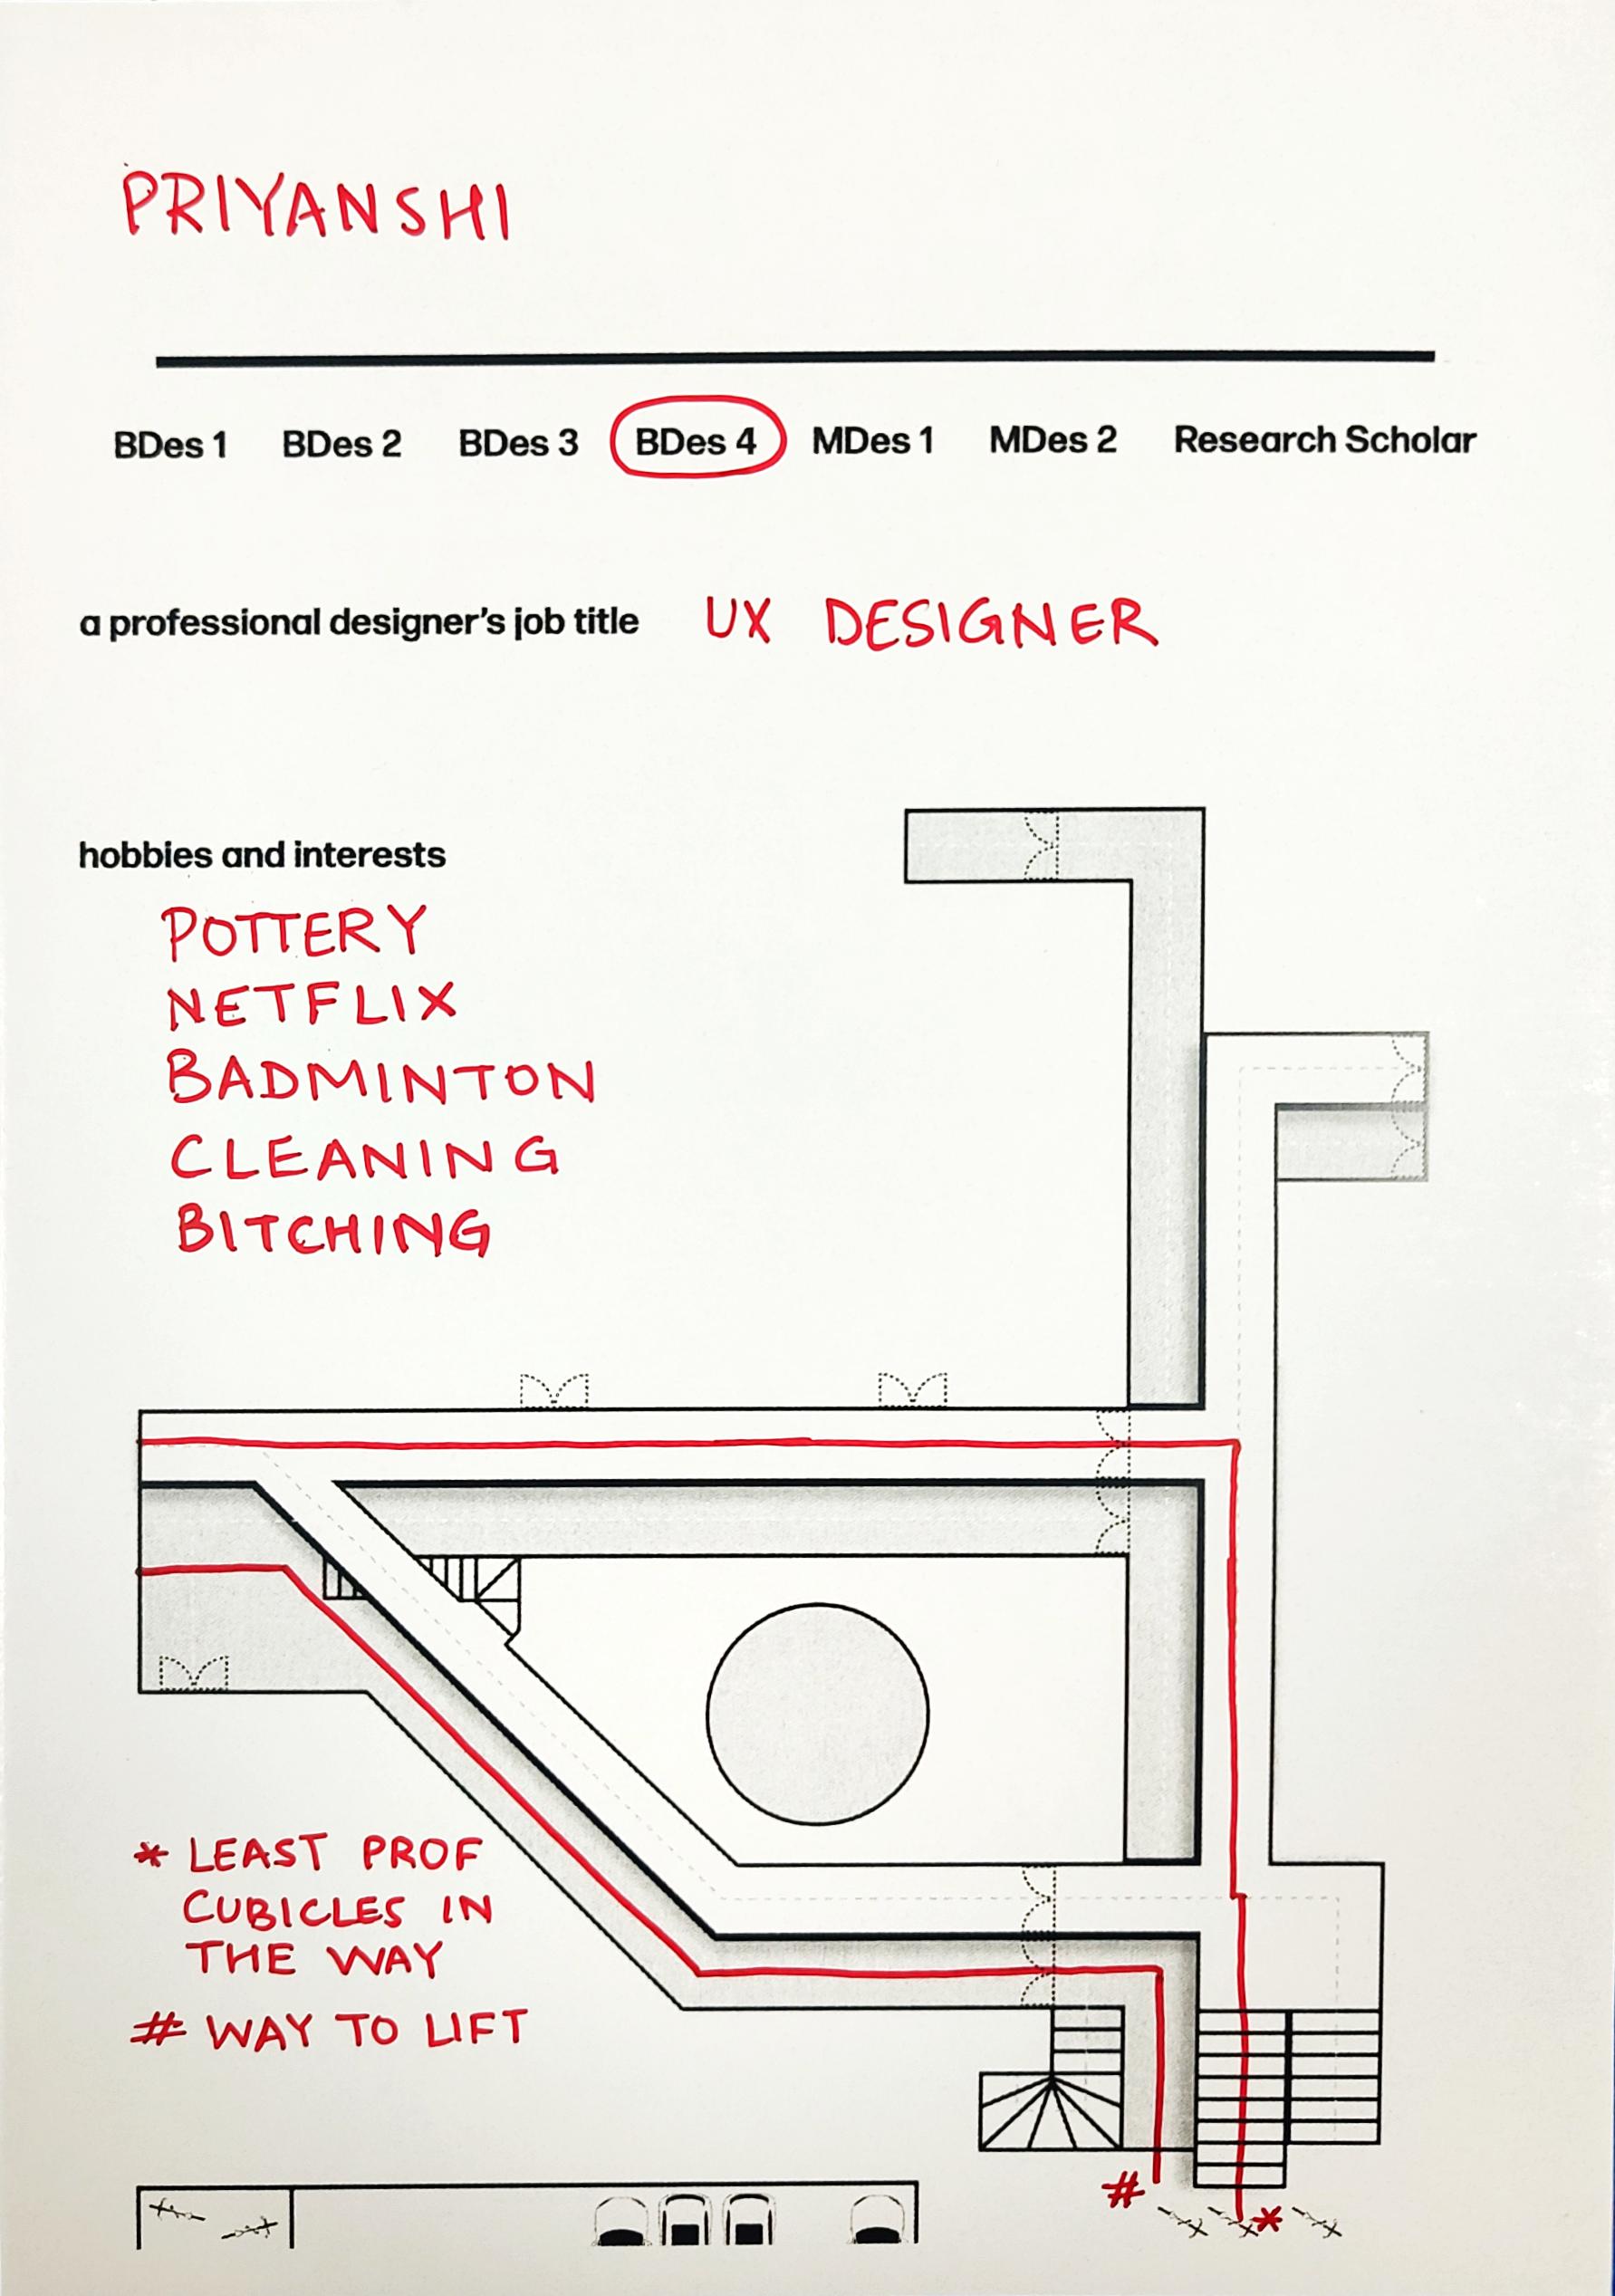 PRIYANSHI
BDes 1 BDes 2 BDes 3 BDes 4 MDes 1 MDes 2 Research Scholar
a professional designer's job title UX DESIGNER
hobbies and interests
POTTERY
NETFLIX
BADMINTON
CLEANING
BITCHING
* LEAST PROF
CUBICLES IN
THE WAY
# WAY TO LIFT
#
*